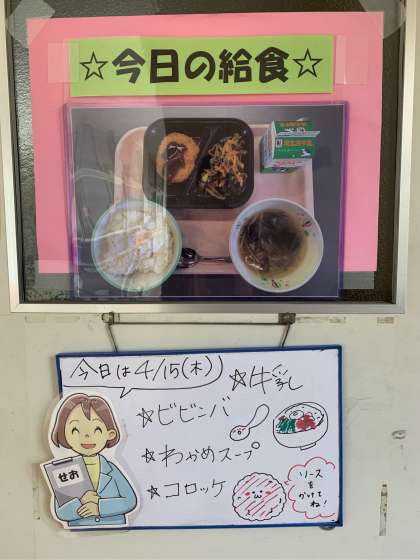 ☆今日の給食☆
今日は4/15(木)
☆牛乳
☆ビビンバ
☆わかめスープ
☆コロッケ
ソース
を
かけて
ね!
せお